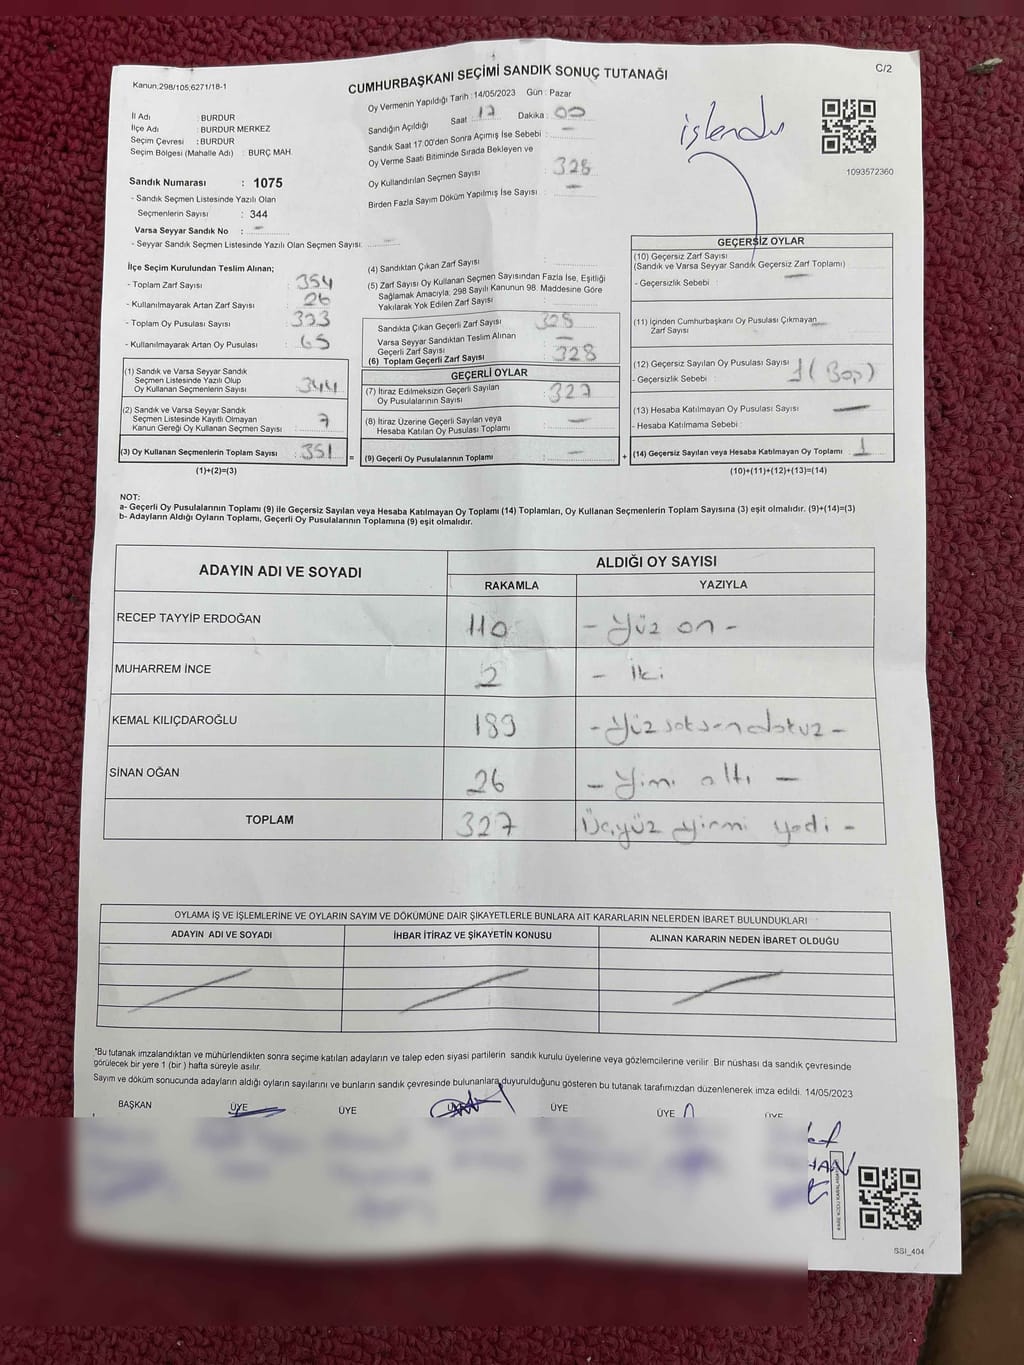 Kanun:298/105;6271/18-1
CUMHURBAŞKANI SEÇİMİ SANDIK SONUÇ TUTANAĞI
C/2
İl Adı : BURDUR
İlçe Adı : BURDUR MERKEZ
Seçim Çevresi : BURDUR
Seçim Bölgesi (Mahalle Adı) : BURÇ MAH.
Sandık Numarası : 1075
- Sandık Seçmen Listesinde Yazılı Olan
Seçmenlerin Sayısı : 344
Varsa Seyyar Sandık No : -
- Seyyar Sandık Seçmen Listesinde Yazılı Olan Seçmen Sayısı: -
Oy Vermenin Yapıldığı Tarih : 14/05/2023 Gün : Pazar
Sandığın Açıldığı Saat : 17 Dakika : 00
Sandık Saat 17.00'den Sonra Açımış İse Sebebi : -
Oy Verme Saati Bitiminde Sırada Bekleyen ve
Oy Kullandırılan Seçmen Sayısı : 328
Birden Fazla Sayım Döküm Yapılmış İse Sayısı : -
işlendi
1093572360
İlçe Seçim Kurulundan Teslim Alınan;
- Toplam Zarf Sayısı : 354
- Kullanılmayarak Artan Zarf Sayısı : 26
- Toplam Oy Pusulası Sayısı : 393
- Kullanılmayarak Artan Oy Pusulası : 65
(1) Sandık ve Varsa Seyyar Sandık
Seçmen Listesinde Yazılı Olup
Oy Kullanan Seçmenlerin Sayısı : 344
(2) Sandık ve Varsa Seyyar Sandık
Seçmen Listesinde Kayıtlı Olmayan
Kanun Gereği Oy Kullanan Seçmen Sayısı : 7
(3) Oy Kullanan Seçmenlerin Toplam Sayısı : 351
(1)+(2)=(3)
(4) Sandıktan Çıkan Zarf Sayısı :
(5) Zarf Sayısı Oy Kullanan Seçmen Sayısından Fazla İse, Eşitliği
Sağlamak Amacıyla, 298 Sayılı Kanunun 98. Maddesine Göre
Yakılarak Yok Edilen Zarf Sayısı :
Sandıkta Çıkan Geçerli Zarf Sayısı : 328
Varsa Seyyar Sandıktan Teslim Alınan
Geçerli Zarf Sayısı : -
(6) Toplam Geçerli Zarf Sayısı : 328
GEÇERLİ OYLAR
(7) İtiraz Edilmeksizin Geçerli Sayılan
Oy Pusulalarının Sayısı : 327
(8) İtiraz Üzerine Geçerli Sayılan veya
Hesaba Katılan Oy Pusulası Toplamı : -
(9) Geçerli Oy Pusulalarının Toplamı : -
GEÇERSİZ OYLAR
(10) Geçersiz Zarf Sayısı
(Sandık ve Varsa Seyyar Sandık Geçersiz Zarf Toplamı)
- Geçersizlik Sebebi : -
(11) İçinden Cumhurbaşkanı Oy Pusulası Çıkmayan
Zarf Sayısı
(12) Geçersiz Sayılan Oy Pusulası Sayısı : 1 (Boş)
- Geçersizlik Sebebi :
(13) Hesaba Katılmayan Oy Pusulası Sayısı : -
- Hesaba Katılmama Sebebi :
(14) Geçersiz Sayılan veya Hesaba Katılmayan Oy Toplamı : 1
(10)+(11)+(12)+(13)=(14)
NOT:
a- Geçerli Oy Pusulalarının Toplamı (9) ile Geçersiz Sayılan veya Hesaba Katılmayan Oy Toplamı (14) Toplamları, Oy Kullanan Seçmenlerin Toplam Sayısına (3) eşit olmalıdır. (9)+(14)=(3)
b- Adayların Aldığı Oyların Toplamı, Geçerli Oy Pusulalarının Toplamına (9) eşit olmalıdır.
ADAYIN ADI VE SOYADI ALDIĞI OY SAYISI
RAKAMLA YAZIYLA
RECEP TAYYİP ERDOĞAN 110 - Yüz on -
MUHARREM İNCE 2 - İki
KEMAL KILIÇDAROĞLU 189 - Yüz seksen dokuz -
SİNAN OĞAN 26 - Yimi altı -
TOPLAM 327 Üçyüz yirmi yedi -
OYLAMA İŞ VE İŞLEMLERİNE VE OYLARIN SAYIM VE DÖKÜMÜNE DAİR ŞİKAYETLERLE BUNLARA AİT KARARLARIN NELERDEN İBARET BULUNDUKLARI
ADAYIN ADI VE SOYADI İHBAR İTİRAZ VE ŞİKAYETİN KONUSU ALINAN KARARIN NEDEN İBARET OLDUĞU
*Bu tutanak imzalandıktan ve mühürlendikten sonra seçime katılan adayların ve talep eden siyasi partilerin sandık kurulu üyelerine veya gözlemcilerine verilir. Bir nüshası da sandık çevresinde
görülecek bir yere 1 (bir) hafta süreyle asılır.
Sayım ve döküm sonucunda adayların aldığı oyların sayılarını ve bunların sandık çevresinde bulunanlara duyurulduğunu gösteren bu tutanak tarafımızdan düzenlenerek imza edildi. 14/05/2023
BAŞKAN ÜYE ÜYE ÜYE ÜYE ÜYE ÜYE
SSI_404